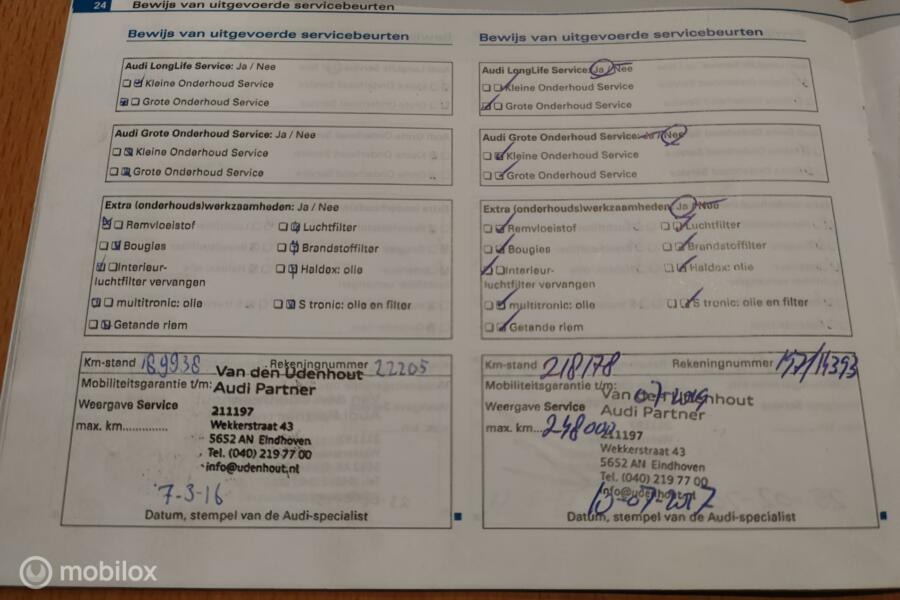 24 Bewijs van uitgevoerde servicebeurten
Bewijs van uitgevoerde servicebeurten
Audi LongLife Service: Ja / Nee
Kleine Onderhoud Service
Grote Onderhoud Service
Audi Grote Onderhoud Service: Ja / Nee
Kleine Onderhoud Service
Grote Onderhoud Service
Extra (onderhouds)werkzaamheden: Ja / Nee
Remvloeistof
Luchtfilter
Bougies
Brandstoffilter
Interieur-
luchtfilter vervangen
Haldex: olie
multitronic: olie
S tronic: olie en filter
Getande riem
Km-stand 189938
Rekeningnummer 22205
Mobiliteitsgarantie t/m:
Weergave Service
max. km..............
Van den Udenhout
Audi Partner
211197
Wekkerstraat 43
5652 AN Eindhoven
Tel. (040) 219 77 00
info@udenhout.nl
7-3-16
Datum, stempel van de Audi-specialist
Bewijs van uitgevoerde servicebeurten
Audi LongLife Service: Ja / Nee
Kleine Onderhoud Service
Grote Onderhoud Service
Audi Grote Onderhoud Service: Ja / Nee
Kleine Onderhoud Service
Grote Onderhoud Service
Extra (onderhouds)werkzaamheden: Ja / Nee
Remvloeistof
Luchtfilter
Bougies
Brandstoffilter
Interieur-
luchtfilter vervangen
Haldex: olie
multitronic: olie
S tronic: olie en filter
Getande riem
Km-stand 218178
Rekeningnummer
Mobiliteitsgarantie t/m:
Weergave Service
max. km... 248000
Van den Udenhout
Audi Partner
211197
Wekkerstraat 43
5652 AN Eindhoven
Tel. (040) 219 77 00
info@udenhout.nl
Datum, stempel van de Audi-specialist
mobilox